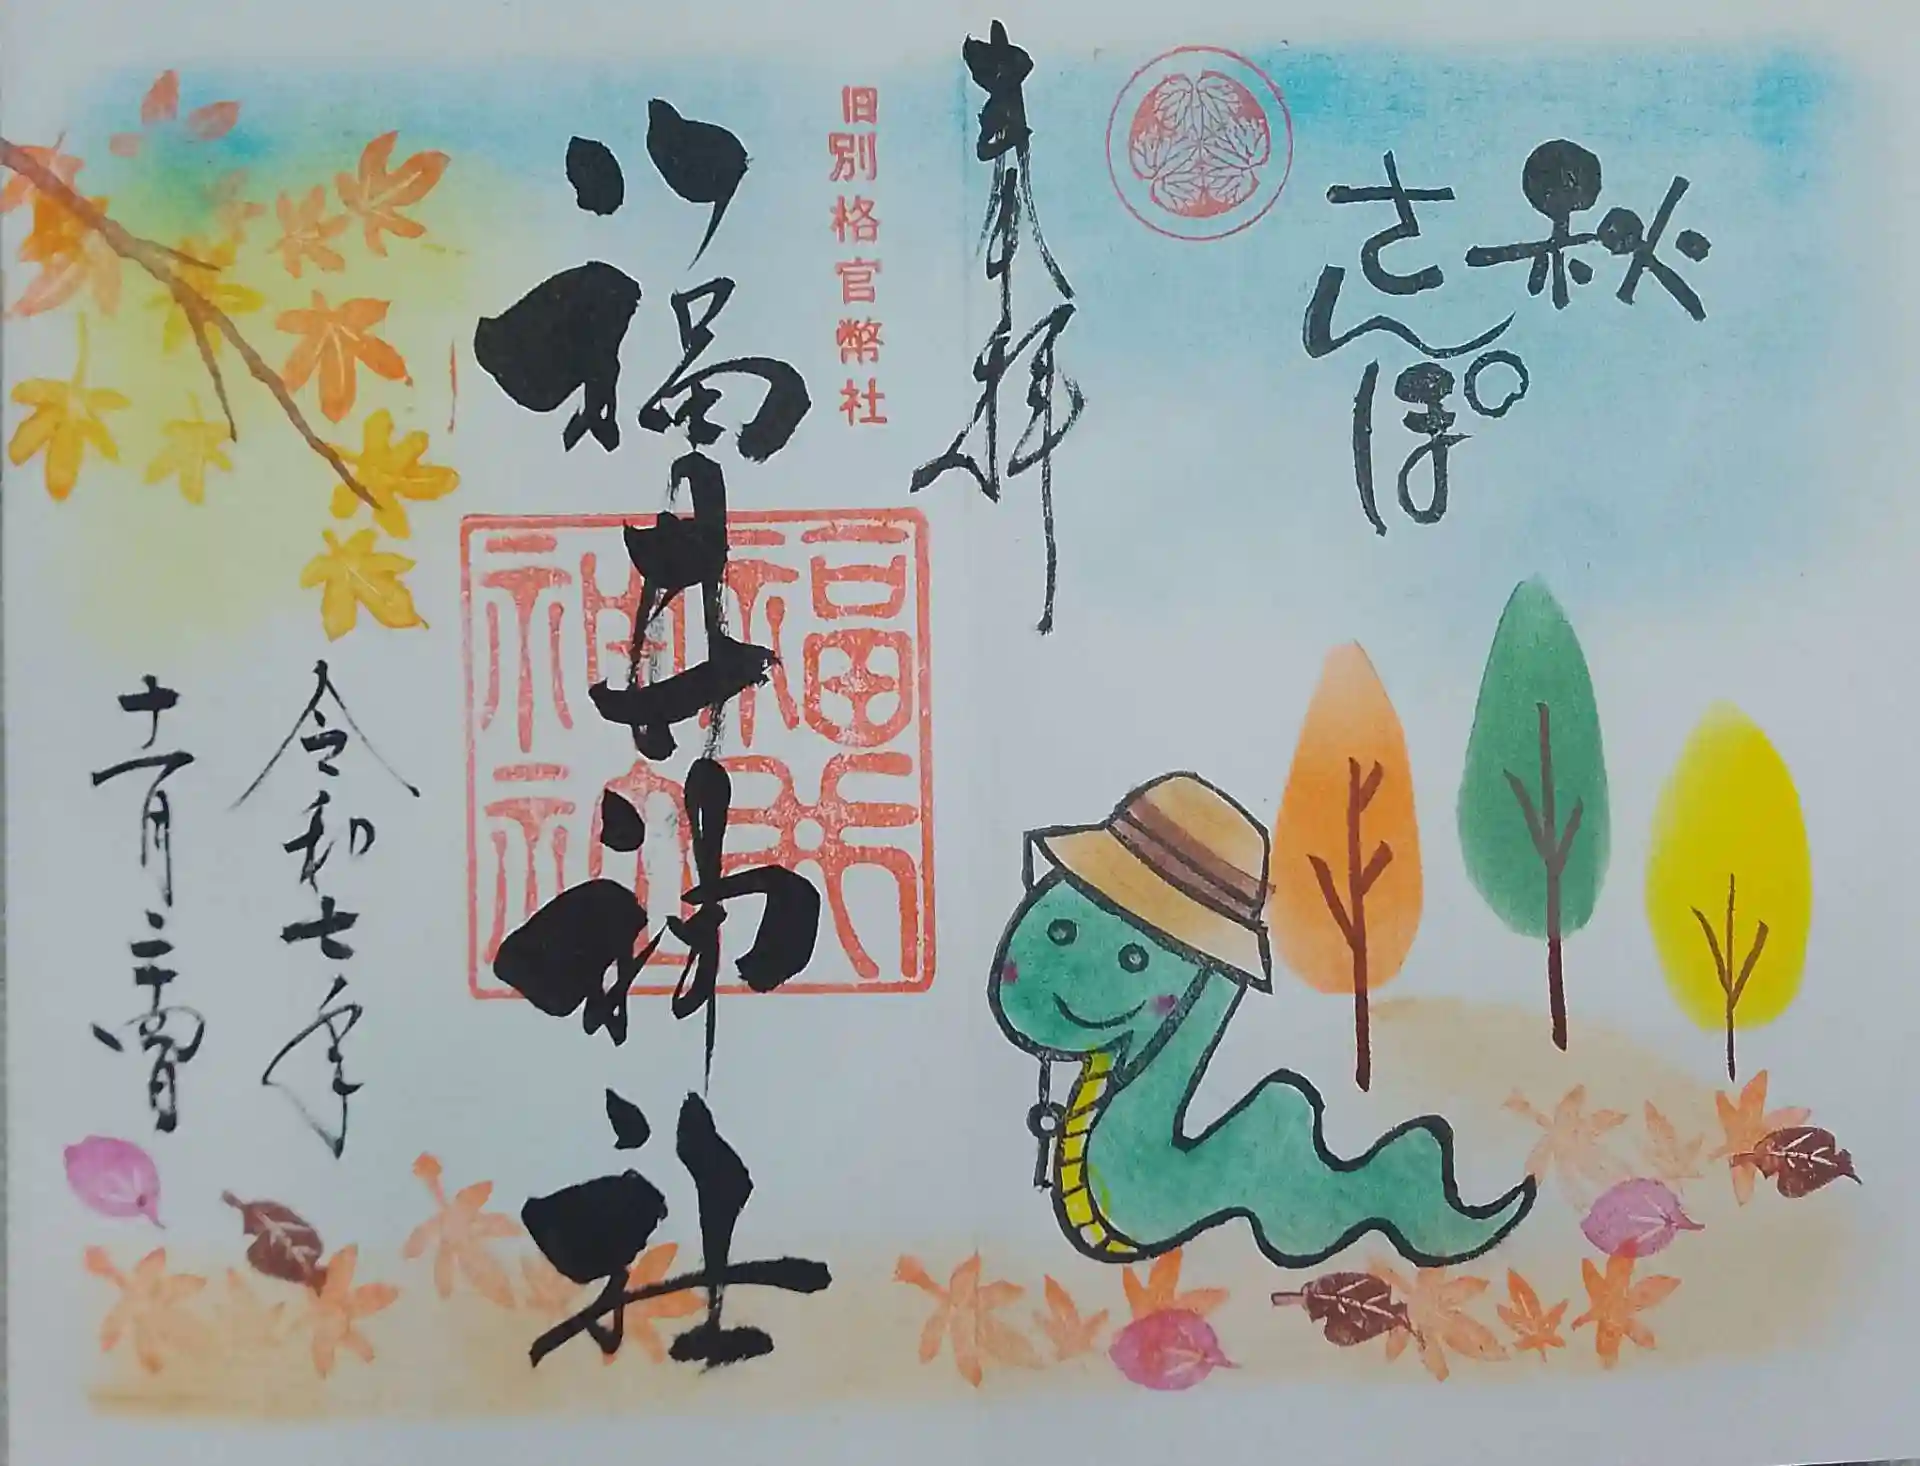 秋
さんぽ
奉拝
旧別格官幣社
福井神社
福井
神社
令和七年
十一月二十四日